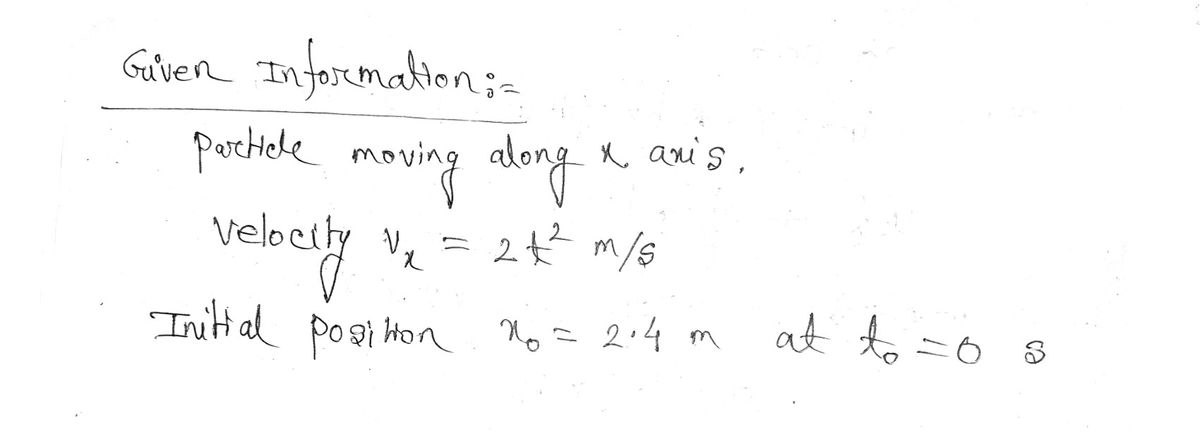 Given Information:-
particle moving along x axis.
velocity vₓ = 2t² m/s
Initial position x₀ = 2.4 m at t₀ = 0 s